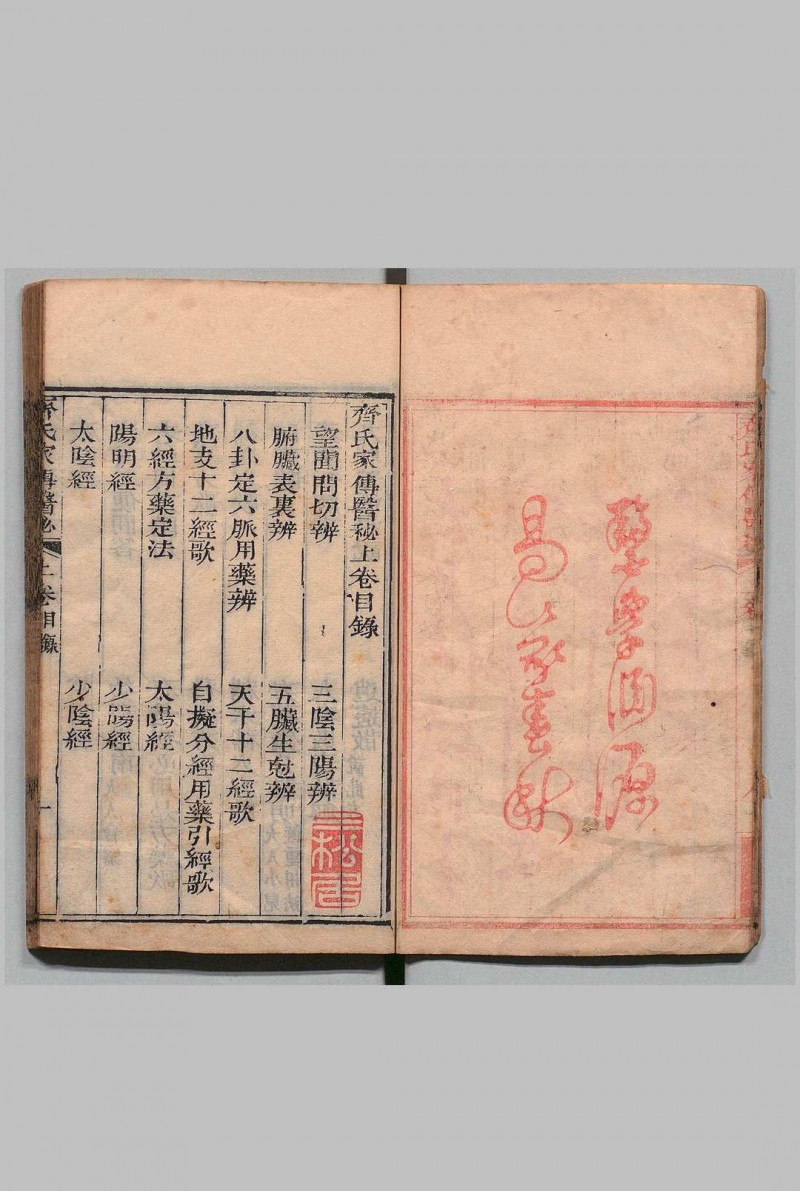 醫學淵源
齊氏家傳醫秘上卷目錄
望聞問切辨 三陰三陽辨
腑臟表裏辨 五臟生尅辨
八卦定六脈用藥辨 天干十二經歌
地支十二經歌 自擬分經用藥引經歌
六經方藥定法 太陽經
陽明經 少陽經
太陰經 少陰經
齊氏家傳醫秘 上卷目錄 一